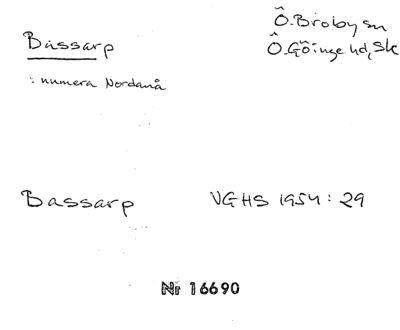 Ô. Broby sn
Bassarp Ô. Göinge hd, Sk
: numera Nordanå
Bassarp VGHS 1954: 29
Nr 16690